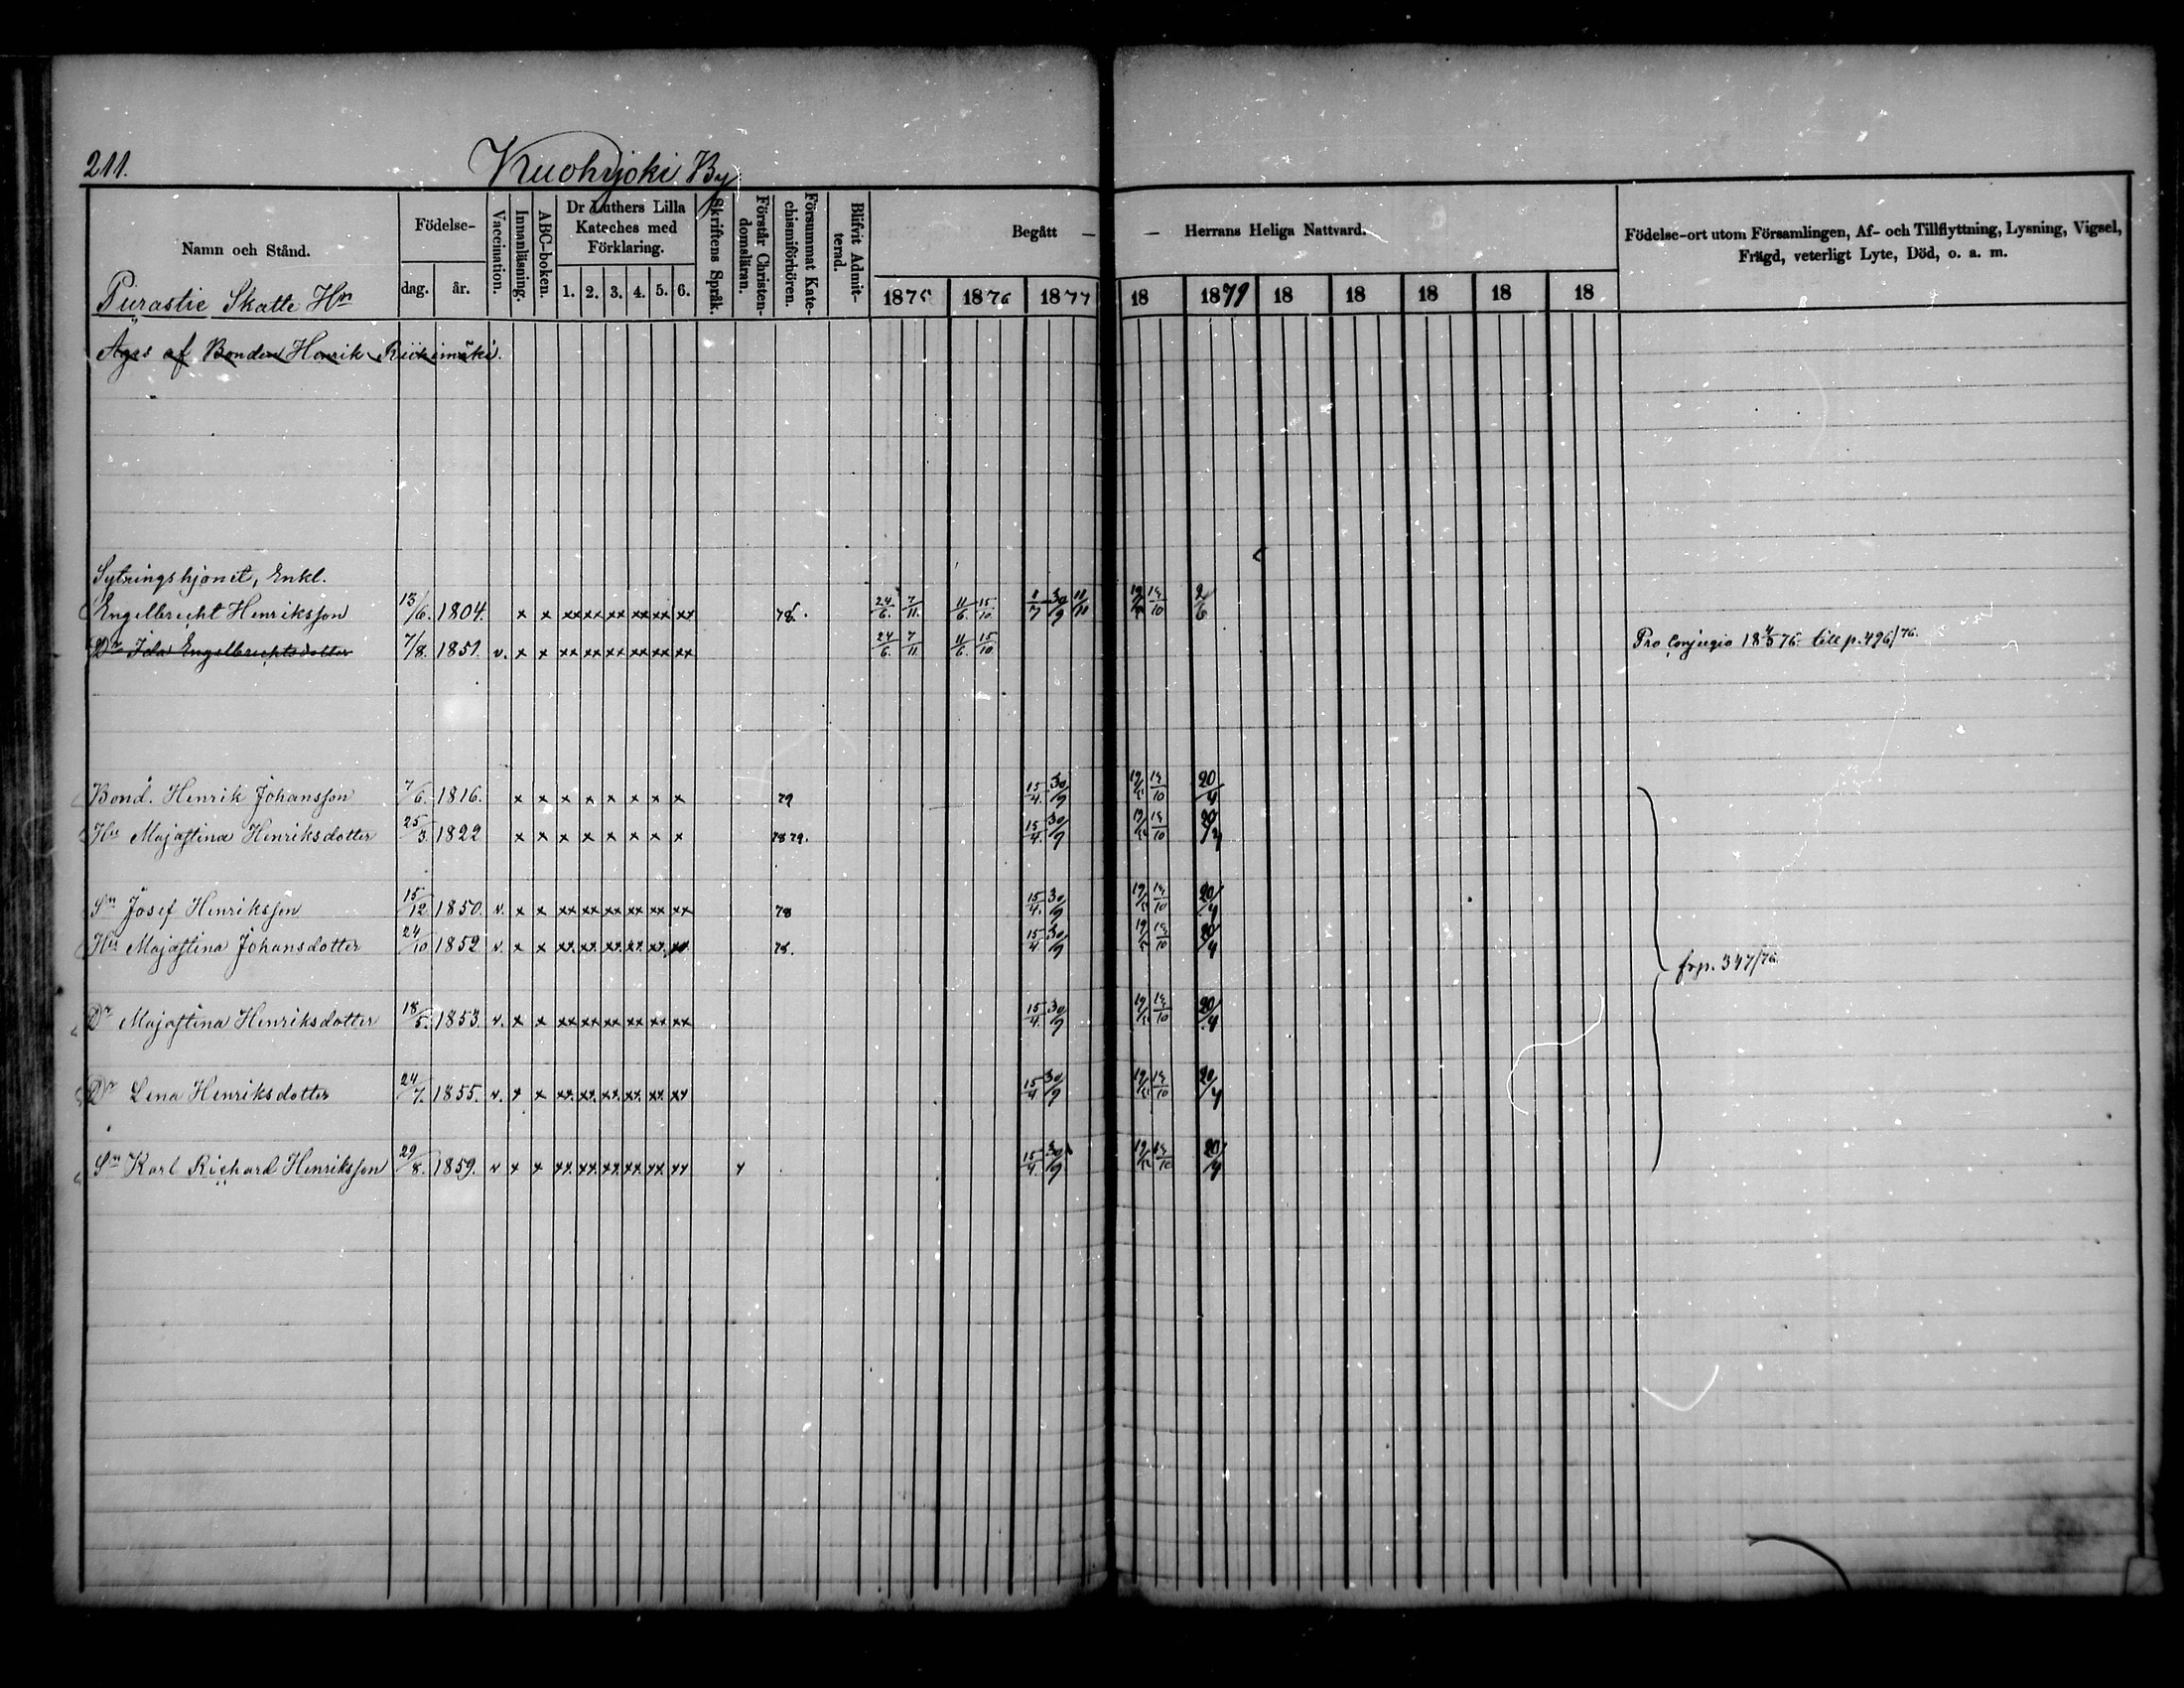 211.
Kuohijoki By
Namn och Stånd.
Födelse-
dag.
år.
Vaccination.
Innanläsning.
ABC-boken.
Dr Luthers Lilla
Kateches med
Förklaring.
1. 2. 3. 4. 5. 6.
Skriftens Språk.
Förstår Christen-
domsläran.
Försummat Kate-
chismiförhören.
Blifvit Admit-
terad.
Begått —
— Herrans Heliga Nattvard.
1875 1876 1877 18 1879 18 18 18 18 18
Födelse-ort utom Församlingen, Af- och Tillflyttning, Lysning, Vigsel,
Frägd, veterligt Lyte, Död, o. a. m.
Purastie Skatte Hn
Äges af Bonden Henrik Riikimäki.
Sytningshjonet, Enkl.
Engelbrecht Henriksson 13/6. 1804. x x xx xx xx xx xx xx 78. 24/6. 7/11. 11/6. 15/10. 1/7 30/9 11/11 10 2/6
Dr Ida Engelbrechtsdotter 7/8. 1851. v. x x xx xx xx xx xx xx 24/6. 7/11. 11/6. 15/10. Pro Conjugio 18 76. till p. 496/76.
Bond. Henrik Johansson 7/6. 1816. x x x x x x x x 79 15/4. 30/9 20/4
Hu Majastina Henriksdotter 25/3. 1822 x x x x x x x x 78 79. 15/4. 30/9 20/4
Sn Josef Henriksson 15/12 1850. v. x x xx xx xx xx xx xx 78 15/4. 30/9 20/4
Hu Majastina Johansdotter 24/10 1852 v. x x xx. xx. xx. xx. xx. xx. 78. 15/4 30/9 20/4
Dr Majastina Henriksdotter 18/5. 1853. v. x x xx xx xx xx xx xx 15/4. 30/9 20/4
frp. 347/76.
Dr Lena Henriksdotter 24/7. 1855. v. x x xx. xx. xx. xx. xx. xx 15/4 30/9 20/4
Sn Karl Richard Henriksson 29/8. 1859. v x x xx. xx. xx. xx. xx. xx x 15/4. 30/9 20/4